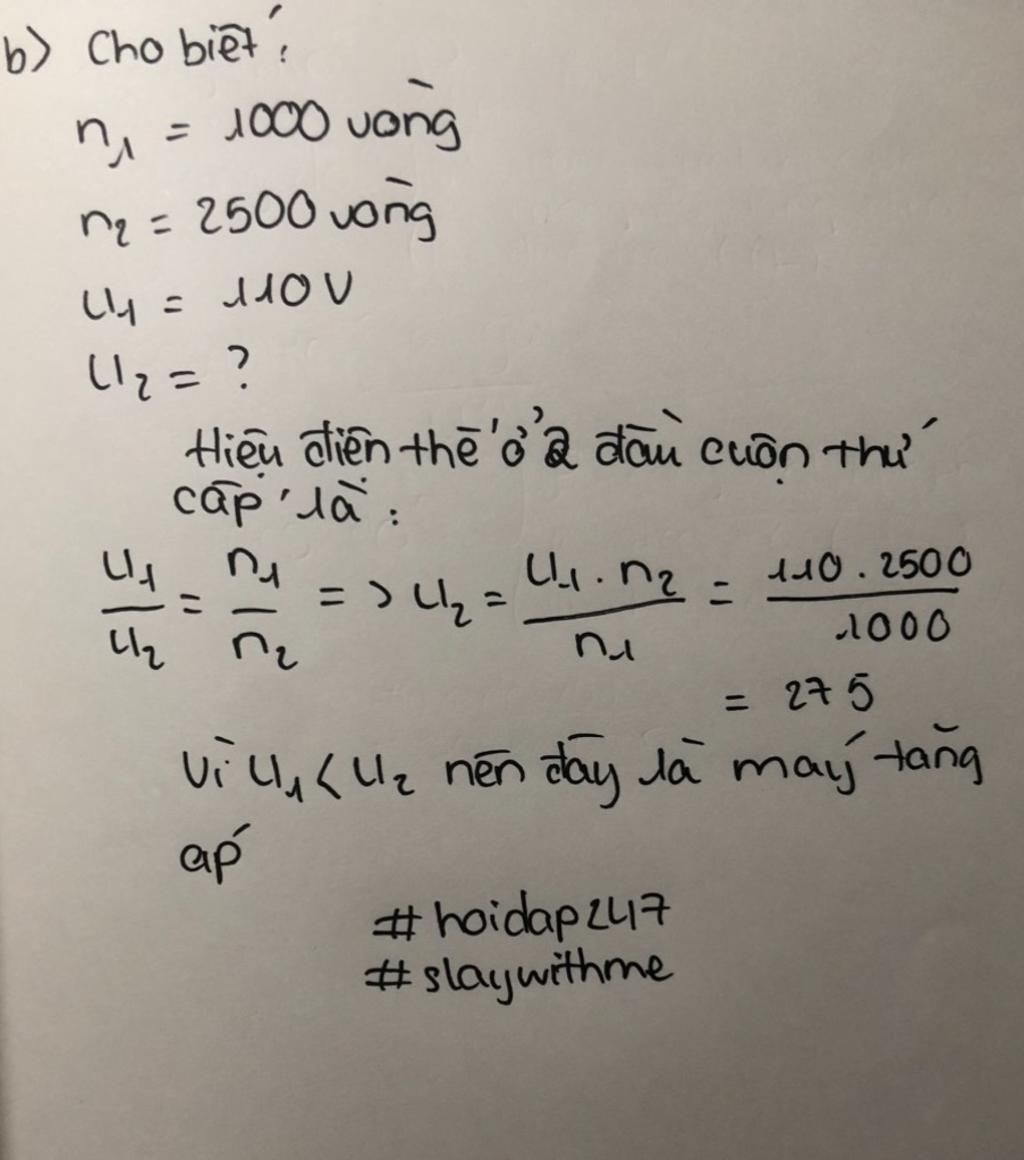 b) Cho biết:
n₁ = 1000 vòng
n₂ = 2500 vòng
U₁ = 110 V
U₂ = ?
Hiệu điện thế ở 2 đầu cuộn thứ
cấp là:
U₁/U₂ = n₁/n₂ => U₂ = U₁.n₂/n₁ = 110.2500/1000
= 275
Vì U₁ < U₂ nên đây là máy tăng
áp
#hoidap247
#slaywithme